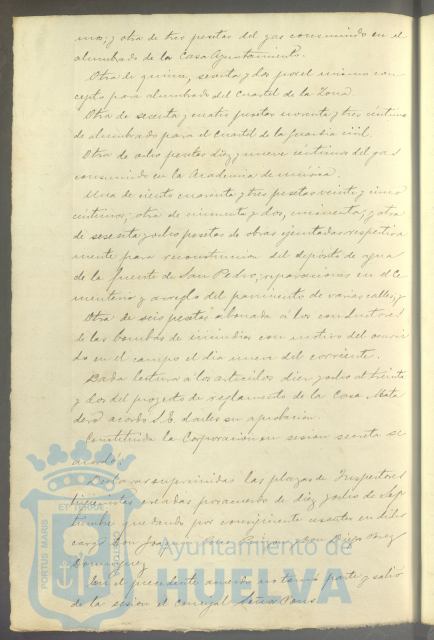 mo; y otra de tres pesetas del gas consumido en el
alumbrado de la Casa Ayuntamiento.
Otra de quince, sesenta y dos por el mismo con-
cepto para alumbrado del Cuartel de la Zona.
Otra de sesenta y cuatro pesetas noventa y tres céntimos
de alumbrado para el Cuartel de la Guardia civil.
Otra de ocho pesetas diez y nueve céntimos del gas
consumido en la Academia de música.
Una de ciento cuarenta y tres pesetas veinte y cinco
céntimos; otra de cincuenta y dos, cincuenta; y otra
de sesenta y ocho pesetas de obras ejecutadas respectiva
mente para reconstrucción del depósito de agua
de la fuente de San Pedro, reparaciones en el Ce
menterio y arreglo del pavimento de varias calles; y
Otra de seis pesetas abonada a los conductores
de las bombas de incendios con motivo del ocurri
do en el campo el día nueve del corriente.
Dada lectura a los artículos diez y ocho al treinta
y dos del proyecto de reglamento de la Casa Mata
dero acordó S.E. darles su aprobación.
Constituida la Corporación en sesión secreta se
acordó:
Declarar suprimidas las plazas de Inspectores
creadas por acuerdo de diez y ocho de Sep
tiembre quedando por consiguiente cesantes en dichos
cargos Don Joaquín y Don Diego
Domínguez
En el precedente acuerdo no tomó parte y salió
de la sesión el concejal Señor Pons.
PORTUS MARIS
ET TERRAE
Ayuntamiento de
HUELVA